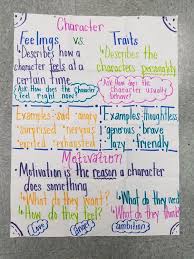 Character
Feelings vs. Traits
Describes how a character feels at a certain time
Describes the characters personality
Ask How does the Character feel right now?
Ask How does the character usually behave?
Examples - sad • angry
surprised • nervous
excited • exhausted
Examples - thoughtful
generous • brave
lazy • friendly
Motivation
Motivation is the reason a character
does something
What do they want?
How do they feel?
What do they need?
What do they think?
Love
danger
ambition